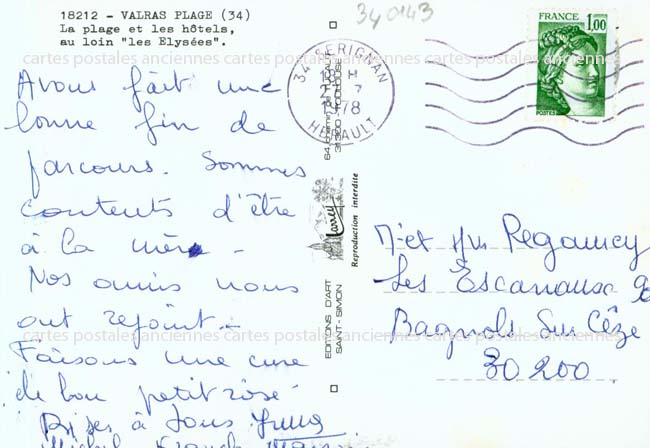 18212 - VALRAS PLAGE (34)
La plage et les hôtels,
au loin "les Elysées".
340143
34 SERIGNAN
1978
HERAULT
FRANCE
1,00
POSTES
cartes postales anciennes cartes postales anciennes cartes postales anciennes
Avons fait une
bonne fin de
parcours. Sommes
contents d'être
à la mère -
Nos amis nous
ont rejoint -
Faisons une cure
de bon petit rosé -
Bises à Tous
EDITIONS D'ART
SAINT-SIMON
Larrey
Reproduction interdite
Mr et Mme Regamey
Les Escanaux
Bagnols Sur Cèze
30200
cartes postales anciennes cartes postales anciennes cartes postales anciennes